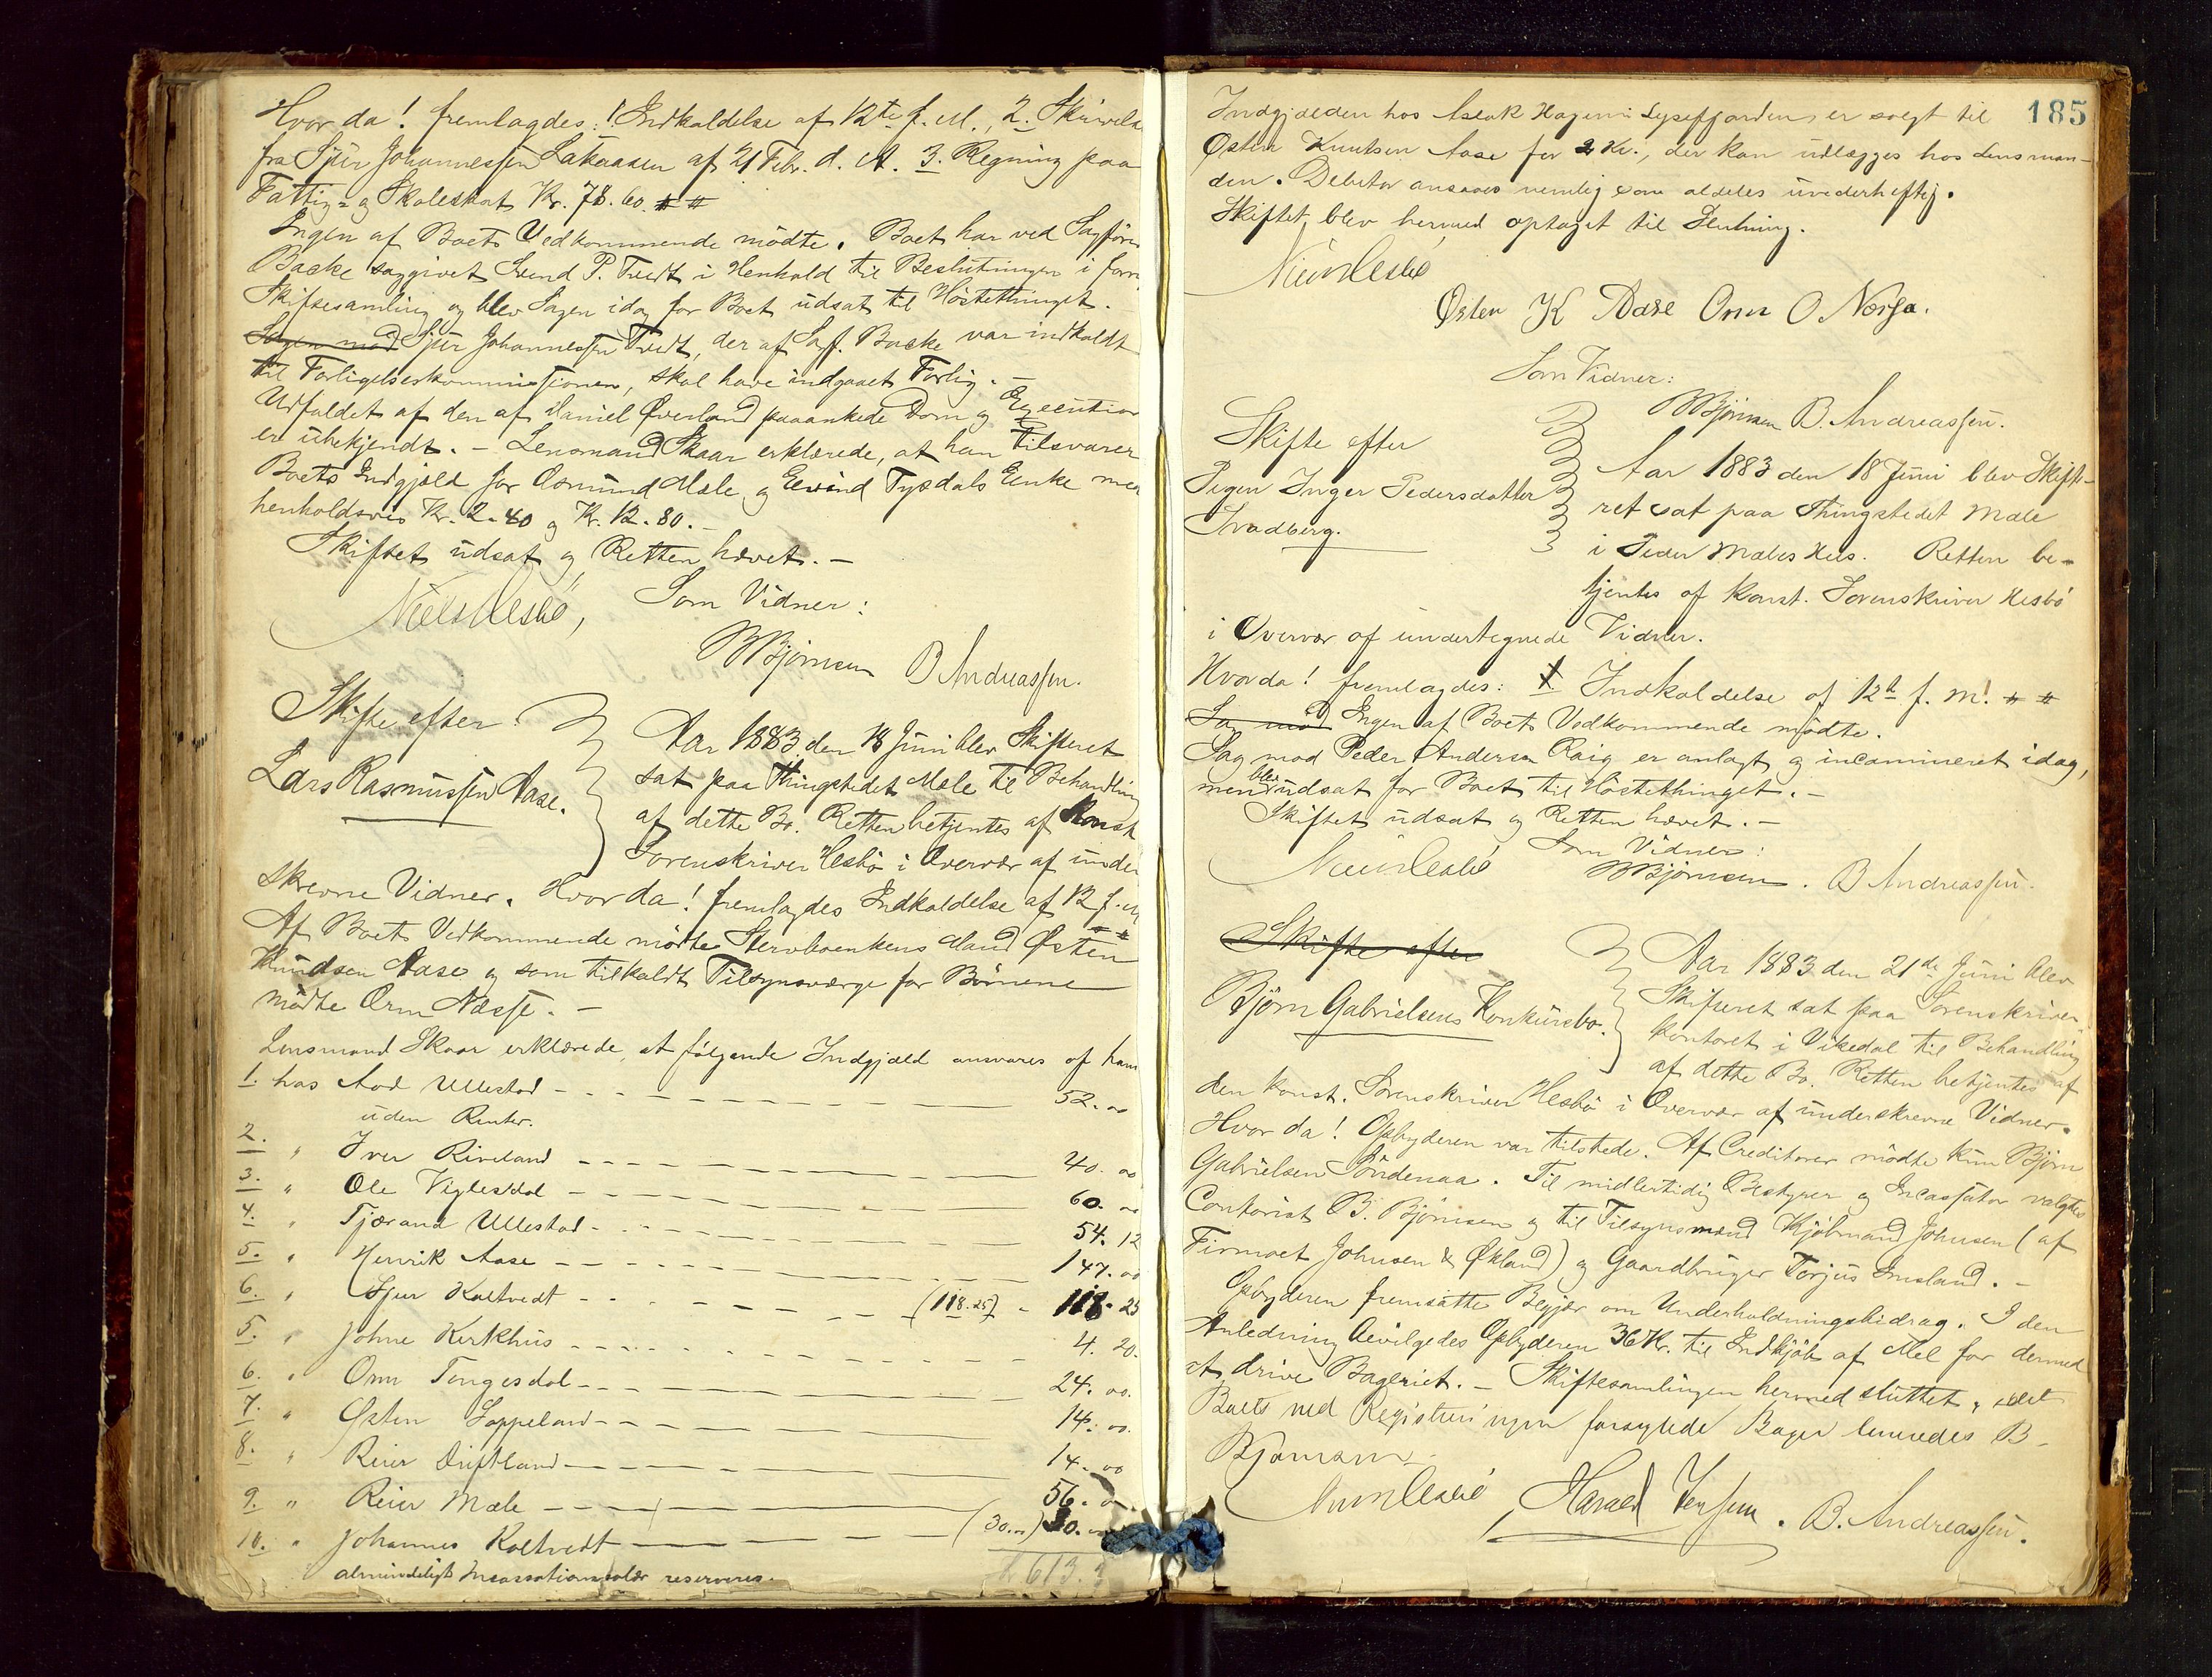 Hvor da! fremlagdes: 1. Indkaldelse af 12te f. M., 2. Skrivelse
fra Sjur Johannessen Lakaasen af 21 Febr. d. A. 3. Regning paa
Fattig- og Skoleskat Kr. 78.60. # #
Ingen af Boets Vedkommende mödte. Boet har ved Sagförer
Backe saggivet Svend P. Tvedt i Henhold til Beslutningen i forr.
Skiftesamling og blev Sagen idag for Boet udsat til Höstethinget.
Sagen mod Sjur Johannessen Tvedt, der af Sagf. Backe var indkaldt
til Forligelseskommissionen, skal have indgaaet Forlig. –
Udfaldet af den af Daniel Øverland paaankede Dom og Execution
er ubekjendt. – Lensmand Skaar erklærede, at han tilsvarer
Boets Indgjæld for Asmund Mæle og Eivind Tysdals Enke med
henholdsvis Kr. 2.40 og Kr. 12.80. –
Skiftet udsat og Retten hævet. –
Niels Hesbö, Som Vidner:
BBjörnsen B Andreassen.
Skifte efter
Lars Rasmussen Aase.
Aar 1883 den 18 Juni blev Skifteret
sat paa Thingstedet Mæle til Behandling
af dette Bo. Retten betjentes af Konst.
Sorenskriver Hesbö i Overvær af under
skrevne Vidner. Hvor da! fremlagdes Indkaldelse af 12 f. M
# #
Af Boets Vedkommende mödte Stervboenkens Mand Østen
Knudsen Aase og som tilkaldt Tilsynsværge for Börnene
mödte Orm Næsse. –
Lensmand Skaar erklærede, at fölgende Indgjæld ansvares af ham
1. hos Aad Ullestad - - - 52.00
uden Renter.
2. " Iver Riveland - - - 40.00
3. " Ole Viglesdal - - - 60.00
4. " Tjærand Ullestad - - - 54.12
5. " Henrik Aase - - - 147.00
6. " Sjur Kaltvedt - - - (118.25) - 118.25
5. " Johne Kirkhus - - - 4.20.
6. " Orm Tengesdal - - - 24.00.
7. " Østen Loppeland - - - 14.00.
8. " Reier Driftland - - - 14.00
9. " Reier Mæle - - - 56.00
10. " Johannes Kaltvedt - - - (30.00) 30.00
almindeligt Incassationssalær reserveres. 613.
185
Indgjælden hos Aslak Hagen i Lysefjorden, er solgt til
Østen Knutsen Aase for 2 Kr., der kan udlægges hos Lensman-
den. Debitor ansaaes nemlig som aldeles uvederheftig.
Skiftet blev hermed optaget til Slutning.
Niels Hesbö
Østen K Aase Orm O Næssa.
Som Vidner:
BBjörnsen B. Andreassen.
Skifte efter
Pigen Inger Pedersdatter
Svadberg.
Aar 1883 den 18 Juni blev Skifte-
ret sat paa Thingstedet Mæle
i Peder Mæles Hus. Retten be-
tjentes af Konst. Sorenskriver Hesbö
i Overvær af undertegnede Vidner.
Hvorda! fremlagdes: 1 Indkaldelse af 12te f. M! # #
Sa mod Ingen af Boets Vedkommende mödte.
Sag mod Peder Andersen Raig er anlagt og incamineret idag,
men blev udsat for Boet til Höstethinget. –
Skiftet udsat og Retten hævet. –
Niels Hesbö Som Vidner:
BBjörnsen. B Andreassen.
Skifte efter
Björn Gabrielsens Konkursbo.
Aar 1883 den 21de Juni blev
Skifteret sat paa Sorenskriver-
kontoret i Vikedal til Behandling
af dette Bo. Retten betjentes af
den konst. Sorenskriver Hesbö i Overvær af underskrevne Vidner.
Hvor da! Opbyderen var tilstede. Af Creditorer mödte kun Björn
Gabrielsen Söndenaa. Til midlertidig Bestyrer og Incassator valgtes
Contorist B. Björnsen og til Tilsynsmænd Kjöbmand Johnsen (af
Firmaet Johnsen & Økland) og Gaardbruger Torjus Imsland. –
Opbyderen fremsatte Begjær om Underholdningsbidrag. I den
Anledning bevilgedes Opbyderen 36 Kr. til Indkjöb af Mel for dermed
at drive Bageriet. – Skiftesamlingen hermed sluttet,
Boets ved Registreringen forseglede Bager leveredes B.
Björnsen.
Niels Hesbö, Harald Jensen. B. Andreassen.